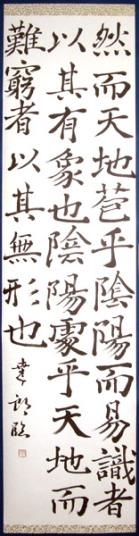 然而天地苞乎陰陽而易識者
以其有象也陰陽處乎天地而
難窮者以其無形也
臨